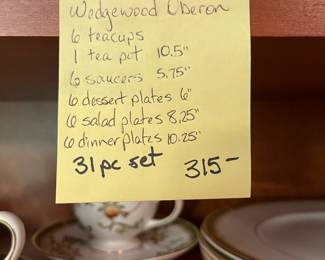 Wedgewood Oberon
6 teacups
1 tea pot 10.5"
6 saucers 5.75"
6 dessert plates 6"
6 salad plates 8.25"
6 dinner plates 10.25"
31 pc set 315-